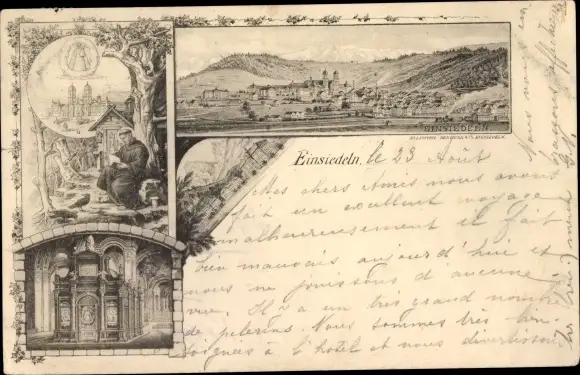 EINSIEDELN
BENZIGER & Co. EINSIEDELN
Einsiedeln, le 23 Août
Mes chers Amis nous avons
fait un excellent voyage
malheureusement il fait
bien mauvais aujourd'hui et
nous ne jouissons d'aucune
vue. Il y a un très grand nombre
de pelerins. Nous sommes très bien
soignées à l'hotel et nous divertissons
très bien
Nous nous